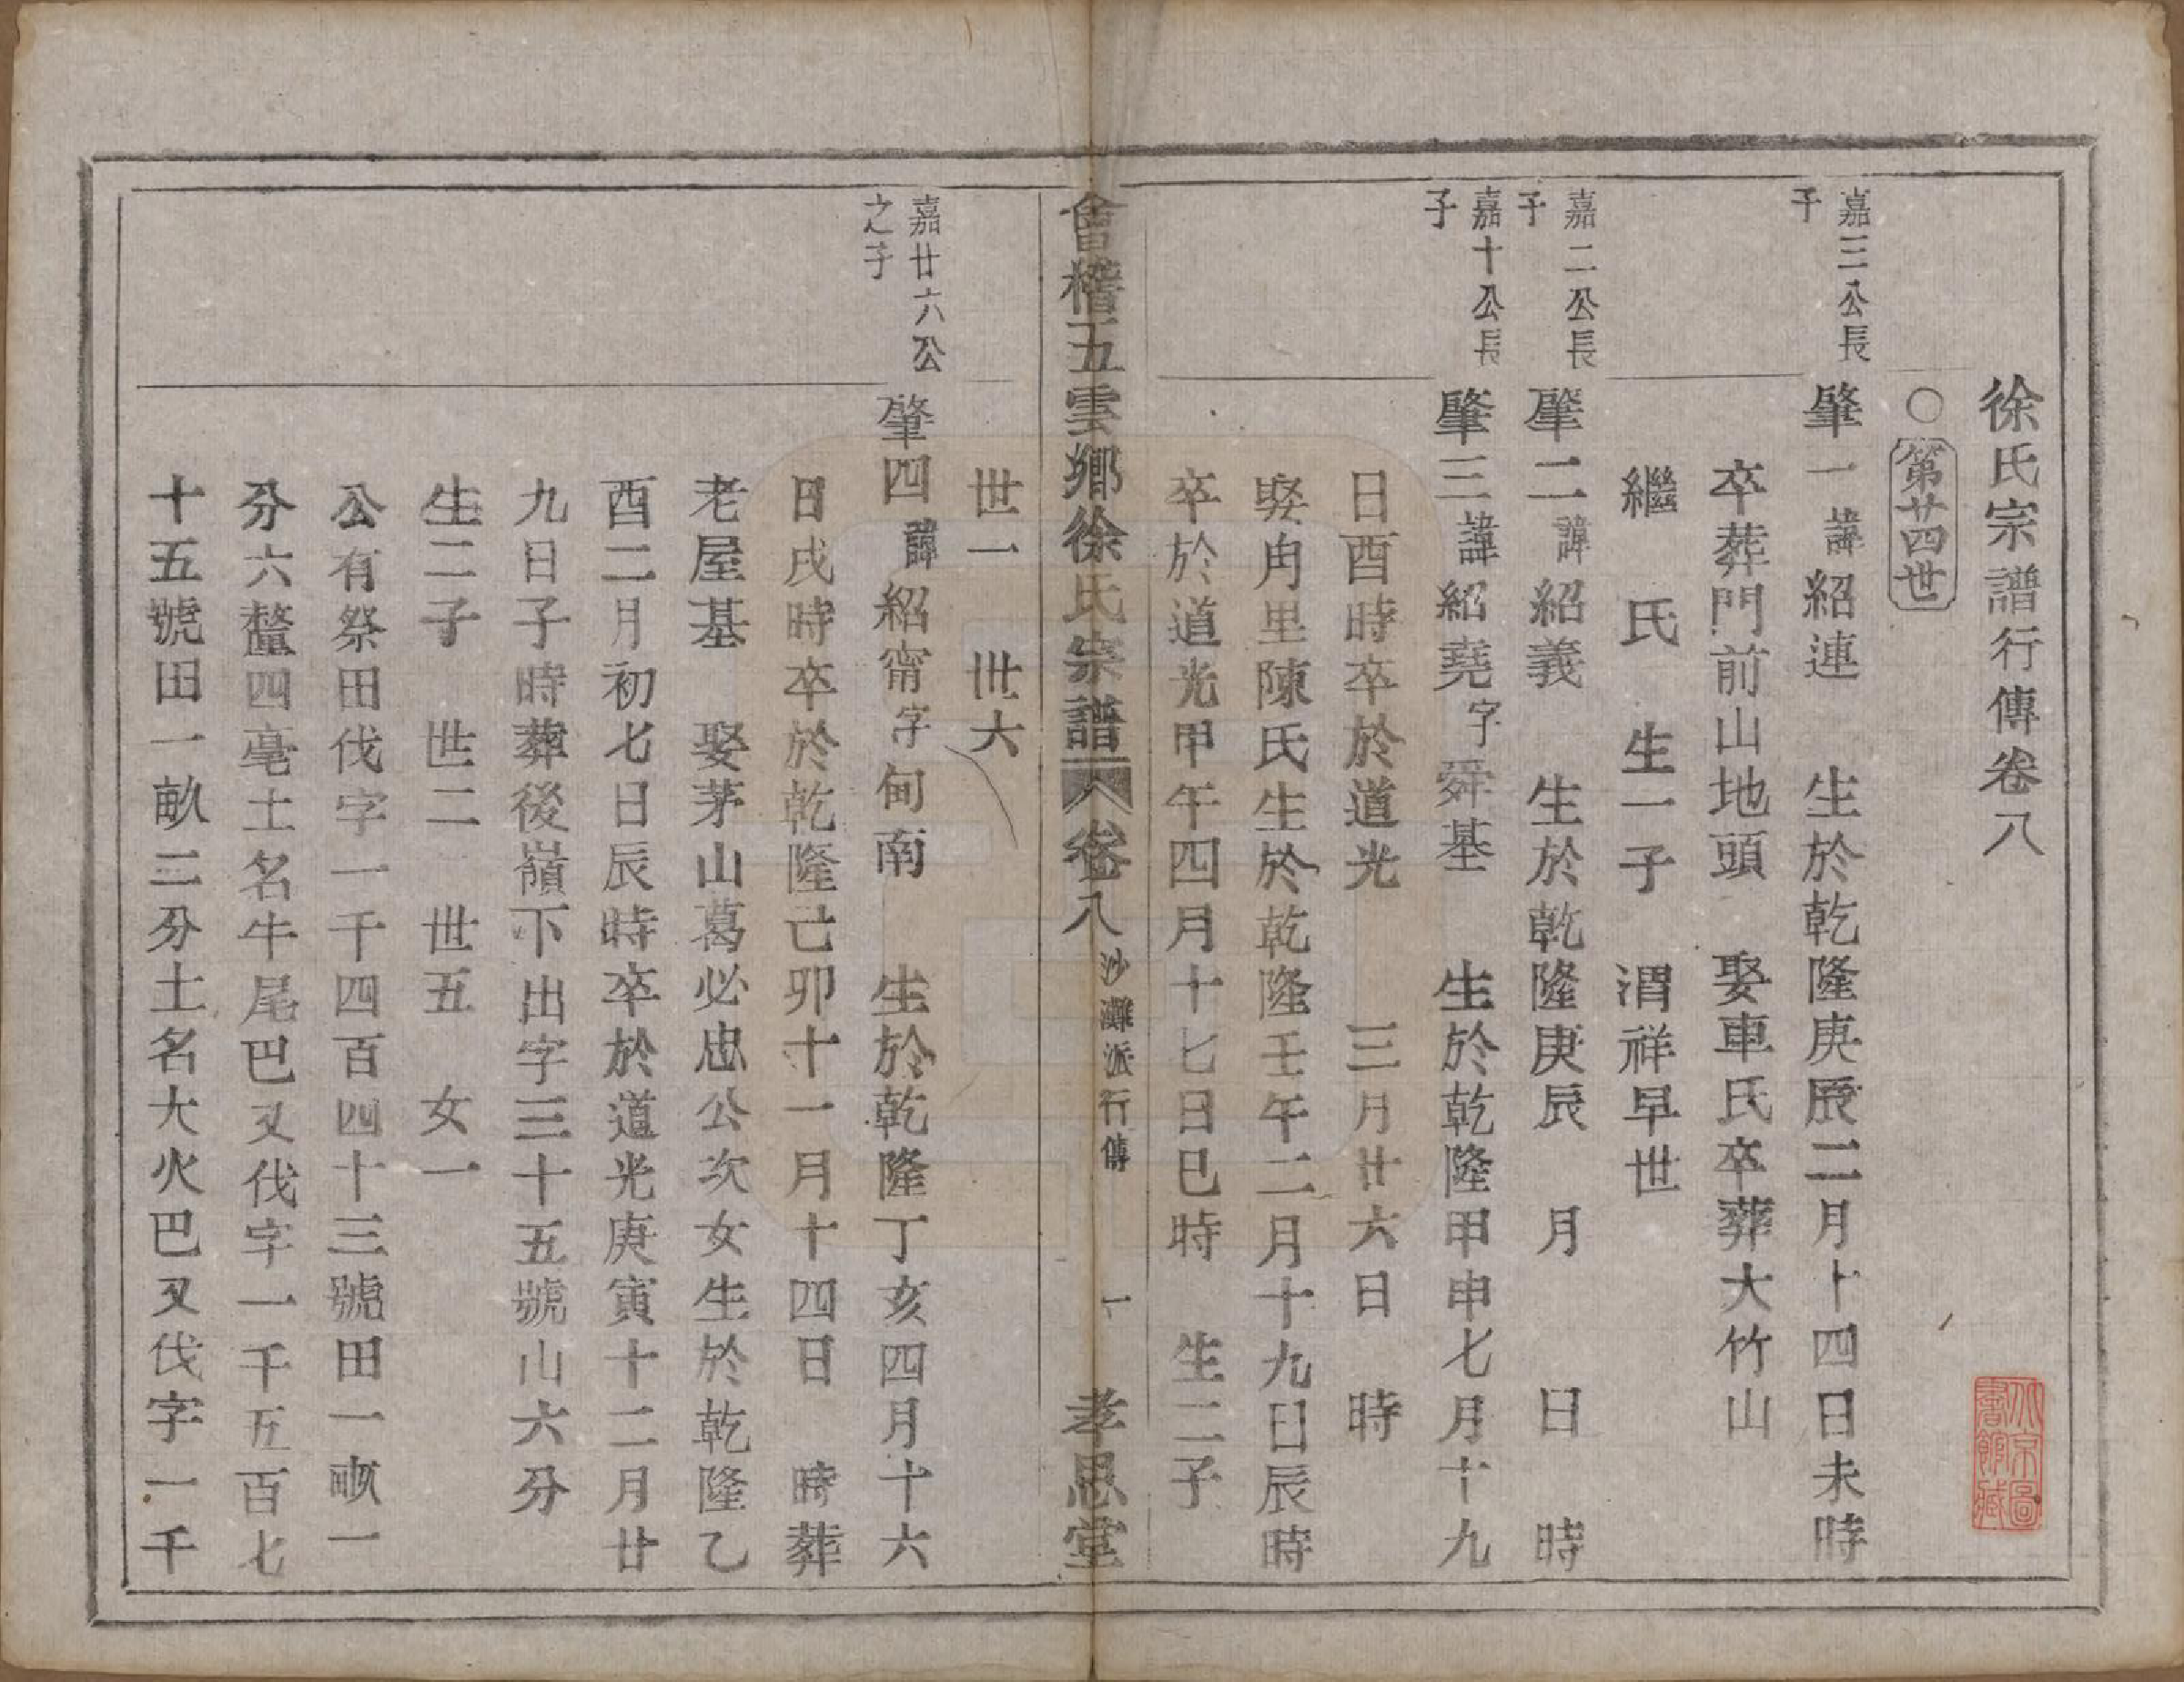 徐氏宗譜行傳卷八
○第廿四世
嘉三公長子
肇一諱紹連　生於乾隆庚辰二月十四日未時
卒葬門前山地頭　娶車氏卒葬大竹山
繼　氏　生一子　渭祥早世
嘉二公長子
肇二諱紹義　生於乾隆庚辰　月　日　時
嘉十公長子
肇三諱紹堯字舜基　生於乾隆甲申七月十九
日酉時卒於道光　三月廿六日　時
娶冉里陳氏生於乾隆壬午二月十九日辰時
卒於道光甲午四月十七日巳時　生二子
世一　世六
會稽五雲鄉徐氏宗譜　卷八　沙灘派行傳　一　孝思堂
嘉廿六公之子
肇四諱紹甯字甸南　生於乾隆丁亥四月十六
日戌時卒於乾隆己卯十一月十四日　時葬
老屋基　娶茅山葛必忠公次女生於乾隆乙
酉二月初七日辰時卒於道光庚寅十二月廿
九日子時葬後嶺下出字三十五號山六分
生二子　世二　世五　女一
公有祭田伐字一千四百四十三號田一畝一
分六釐四毫土名牛尾巴又伐字一千五百七
十五號田一畝三分土名大火巴又伐字一千